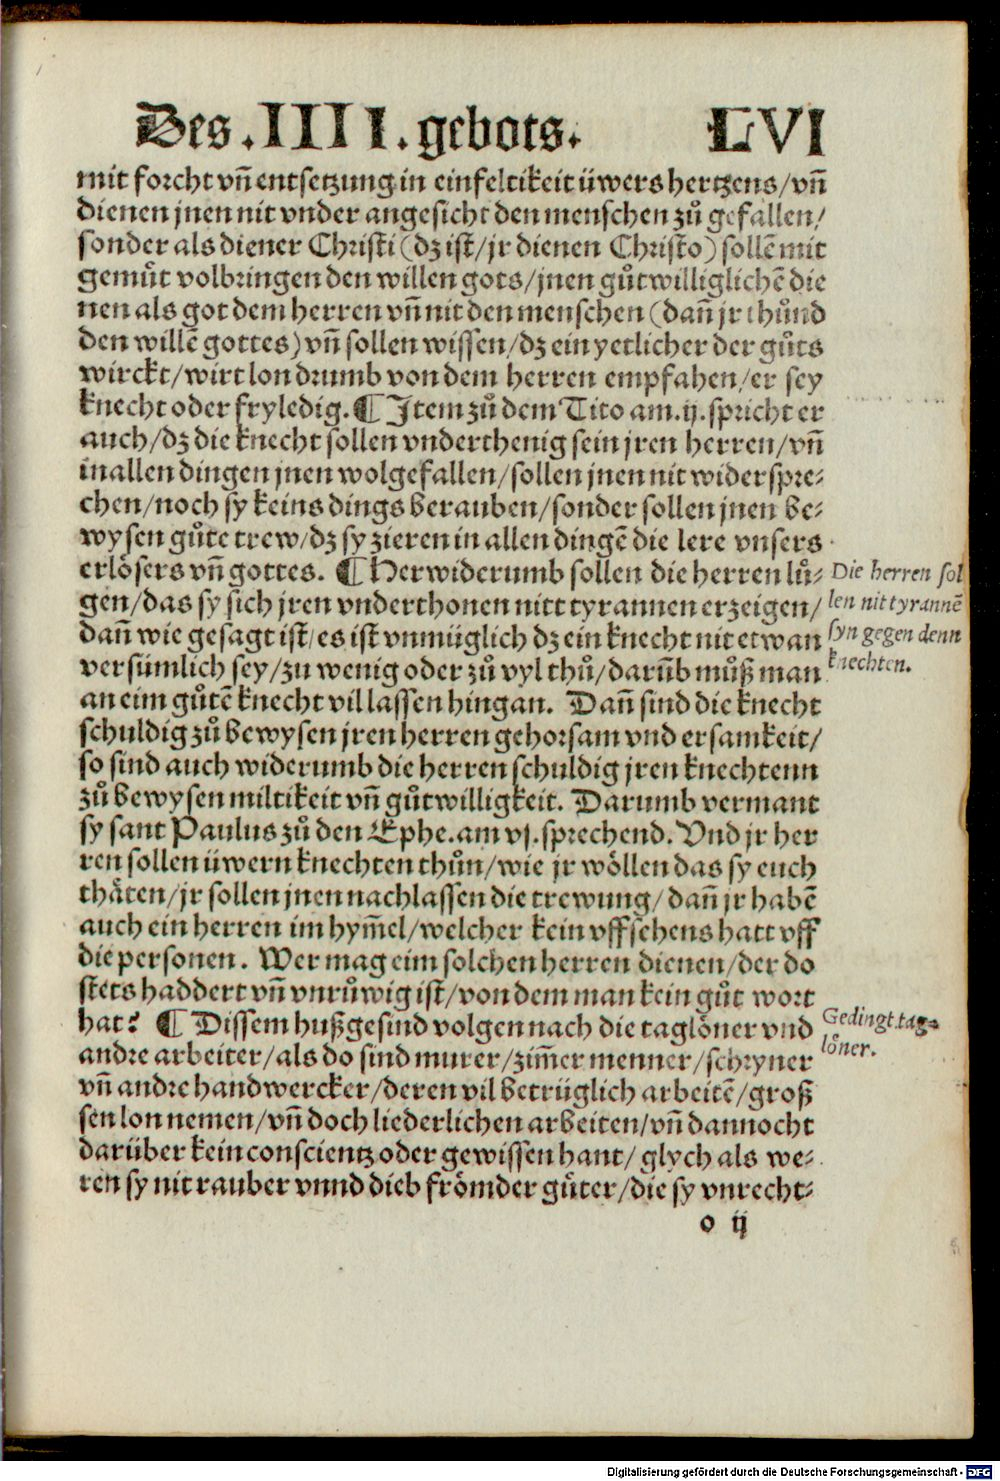 Des .IIII. gebots. LVI
mit forcht vnd̄ entsetzung in einfeltikeit üwers hertzens/vñ
dienen jnen nit vnder angesicht den menschen zů gefallen/
sonder als diener Christi (dz ist/jr dienen Christo) sollē mit
gemůt volbringen den willen gots/jnen gůtwilliglichē die
nen als got dem herren vñ nit den menschen (dañ jr thůnd
den willē gottes) vñ sollen wissen/dz ein yetlicher der gůts
wirckt/wirt lon drumb von dem herren empfahen/er sey
knecht oder fryledig. ¶ Item zů dem Tito am .ij. spricht er
auch/dz die knecht sollen vnderthenig sein jren herren/vñ
in allen dingen jnen wolgefallen/sollen jnen nit widerspre⸗
chen/noch sy keins dings berauben/sonder sollen jnen be⸗
wysen gůte trew/dz sy zieren in allen dingē die lere vnsers
erlösers vñ gottes. ¶ Herwiderumb sollen die herren lů⸗
gen/das sy sich jren vnderthonen nitt tyrannen erzeigen/
dañ wie gesagt ist/es ist vnmüglich dz ein knecht nit etwan
versümlich sey/zu wenig oder zů vyl thů/darũb můß man
an eim gůtē knecht vil lassen hingan. Dañ sind die knecht
schuldig zů bewysen jren herren gehorsam vnd ersamkeit/
so sind auch widerumb die herren schuldig jren knechtenn
zů bewysen miltikeit vñ gůtwilligkeit. Darumb vermant
sy sant Paulus zů den Ephe. am vj. sprechend. Vnd jr her
ren sollen üwern knechten thůn/wie jr wöllen das sy euch
thäten/jr sollen jnen nachlassen die trewung/dañ jr habē
auch ein herren im hym̄el/welcher kein vffsehens hatt vff
die personen. Wer mag eim solchen herren dienen/der do
stets haddert vñ vnrůwig ist/von dem man kein gůt wort
hat? ¶ Dissem hußgesind volgen nach die taglöner vnd
andre arbeiter/als do sind murer/zim̄er menner/schryner
vñ andre handwercker/deren vil betrüglich arbeitē/groß
sen lon nemen/vñ doch liederlichen arbeiten/vñ dannocht
darüber kein conscientz oder gewissen hant/glych als we⸗
ren sy nit rauber vnnd dieb frömder güter/die sy vnrecht⸗
o ij
Die herren sol
len nit tyrannē
syn gegen denn
knechten.
Gedingt tag⸗
löner.
Digitalisierung gefördert durch die Deutsche Forschungsgemeinschaft - DFG